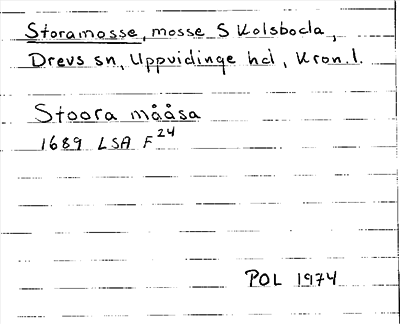 Storamosse, mosse S Kolsboda,
Drevs sn, Uppvidinge hd, Kron.l.
Stoora mååsa
1689 LSA F24
POL 1974